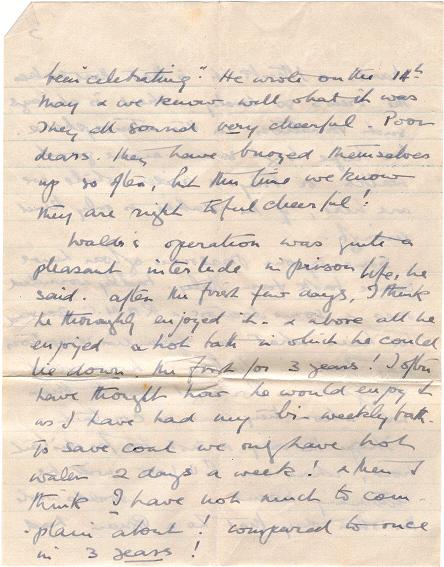 been "celebrating." He wrote on the 14th
May & we know well what it was
They all sound very cheerful. Poor
dears. They have buoyed themselves
up so often, but this time we know
they are right to ful cheerful!
Waldi's operation was quite a
pleasant interlude in prison life, he
said. after the first few days, I think
he thoroughly enjoyed it. & above all he
enjoyed a hot bath in which he could
lie down. The first for 3 years! I often
have thought how he would enjoy it
as I have had my bi-weekly bath.
To save coal we only have hot
water 2 days a week! & then I
think I have not much to com-
-plain about! compared to once
in 3 years!